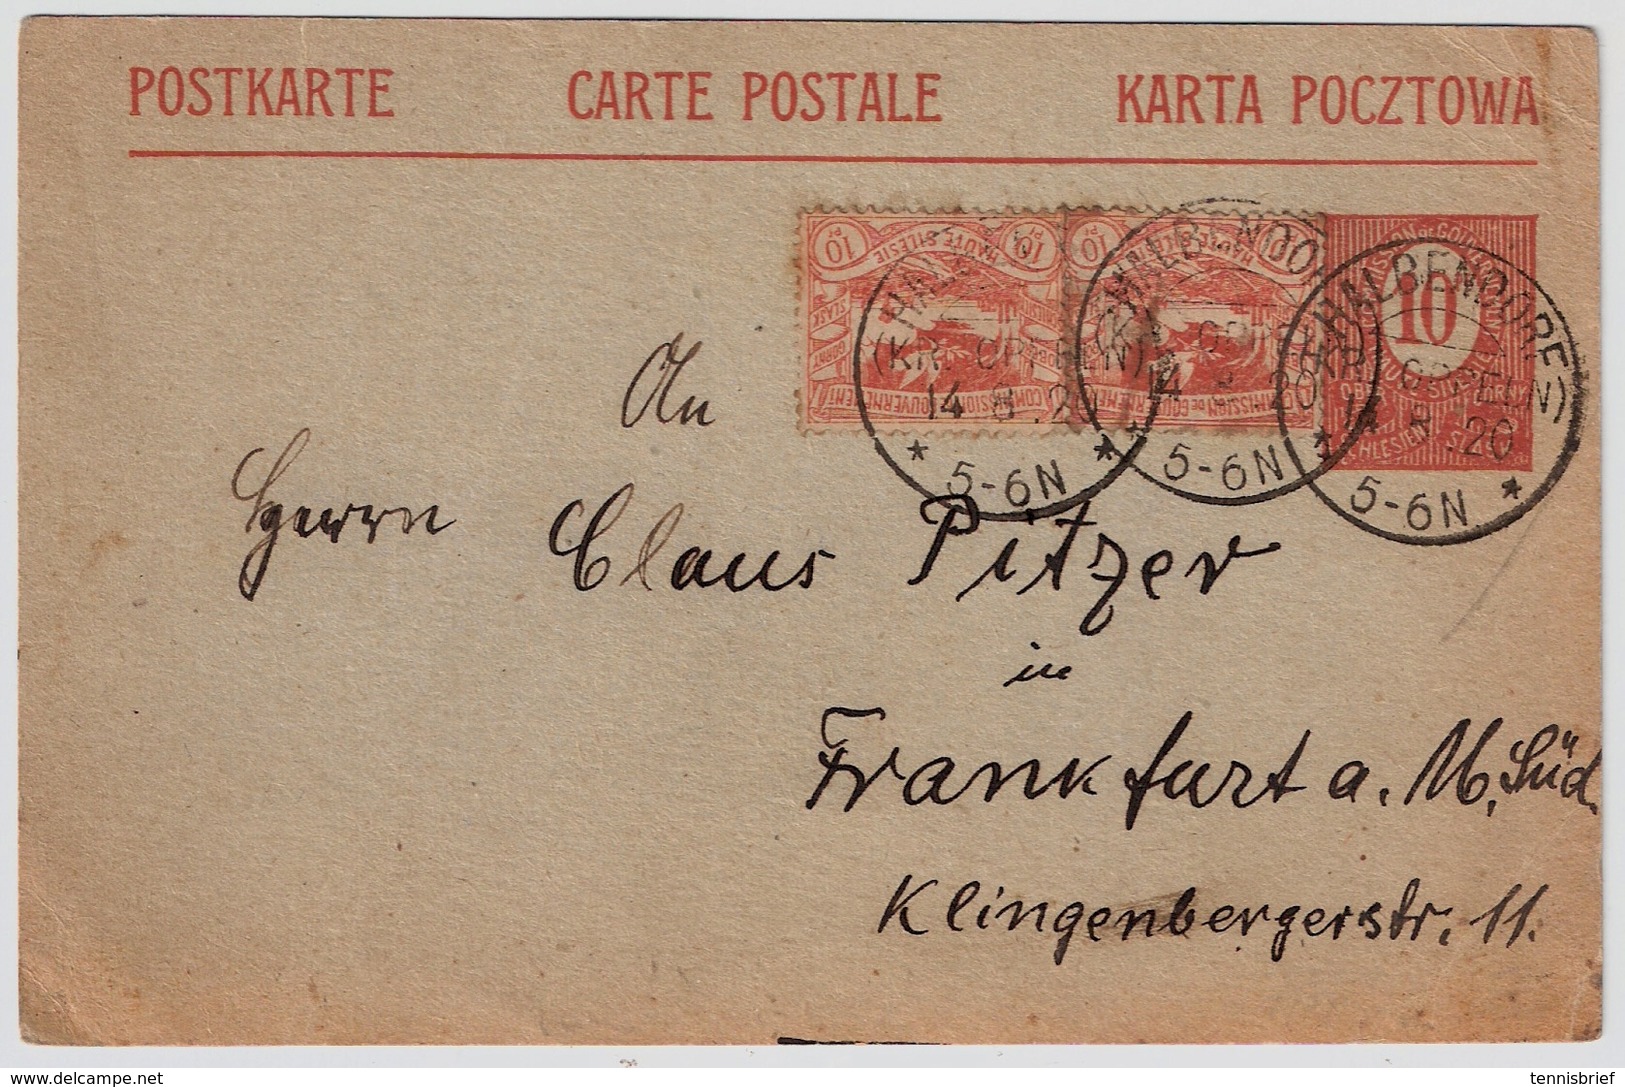 POSTKARTE CARTE POSTALE KARTA POCZTOWA
10 Pf HAUTE SILESIE 10 Pf
COMMISSION GOUVERNEMENT
10 Pf 10
COMMISSION DE GOUVERNEMENT
10
HALBENDORF
(KR. OPPELN)
14 8 .20
5-6N
HALBENDORF
(KR. OPPELN)
14 8 20
5-6N
HALBENDORF
(KR. OPPELN)
14 8 .20
5-6N
An
Herrn Claus Pitzer
in
Frankfurt a. M. Süd.
Klingenbergerstr. 11.
www.delcampe.net
tennisbrief